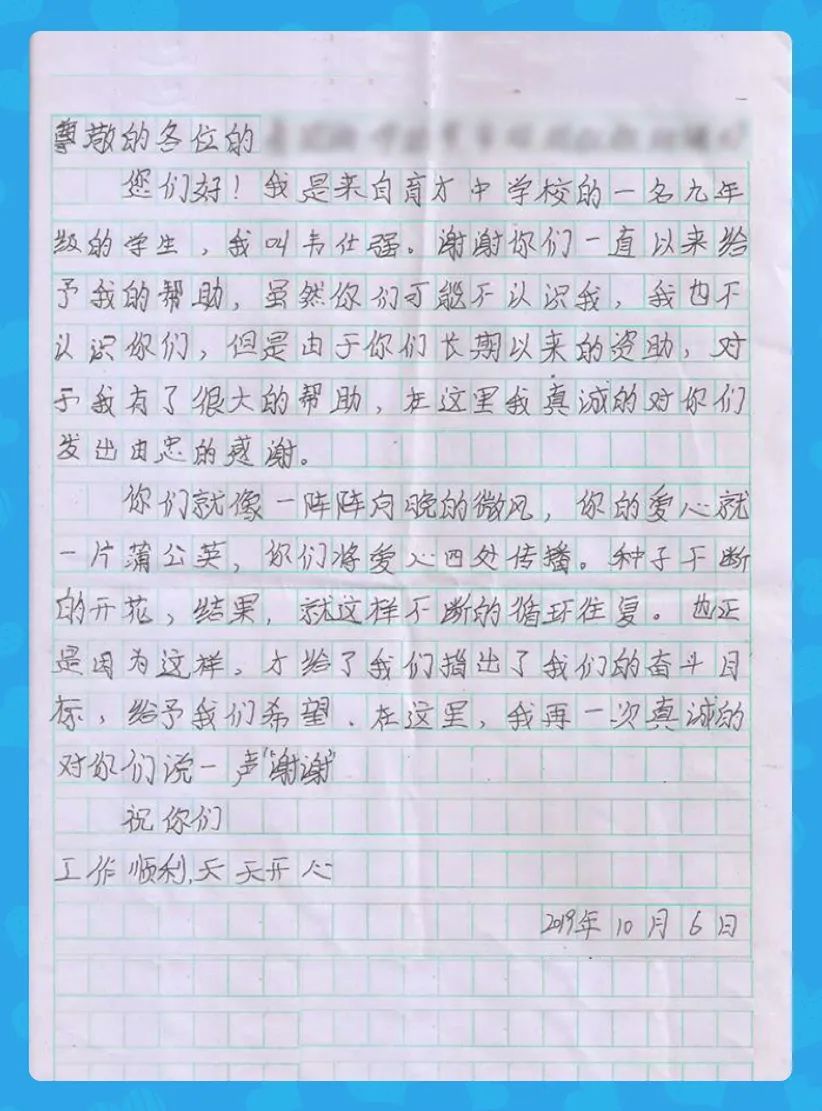 尊敬的各位的
您们好！我是来自育才中学校的一名九年
级的学生，我叫韦仕强。谢谢你们一直以来给
予我的帮助，虽然你们可能不认识我，我也不
认识你们，但是由于你们长期以来的资助，对
于我有了很大的帮助，在这里我真诚的对你们
发出由忠的感谢。
你们就像一阵阵向晚的微风，你的爱心就
一片蒲公英，你们将爱心四处传播。种子不断
的开花，结果，就这样不断的循环往复。也正
是因为这样，才给了我们指出了我们的奋斗目
标，给予我们希望．在这里，我再一次真诚的
对你们说一声“谢谢”
祝你们
工作顺利，天天开心
2019年10月6日